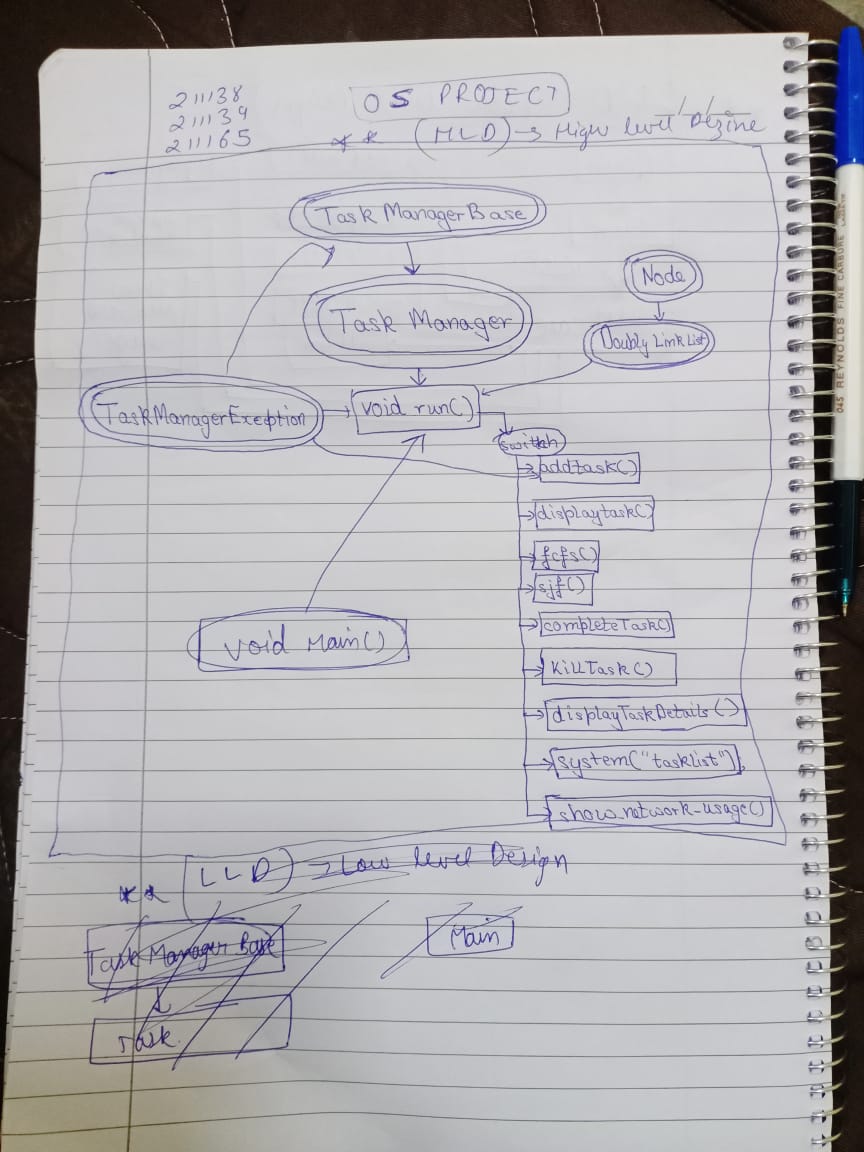 21138
21139
21165
OS PROJECT
** (HLD) → High level Dezine
Task Manager Base
Node
Task Manager
Doubly Link List
TaskManagerExeption
void run()
switch
addtask()
displaytask()
fcfs()
sjf()
completeTask()
void Main()
KillTask()
displayTaskDetails()
system("tasklist"),
show_network_usage()
** (LLD) → Low level Design
Task Manager Base
Main
Task
045 REYNOLDS FINE CARBURE